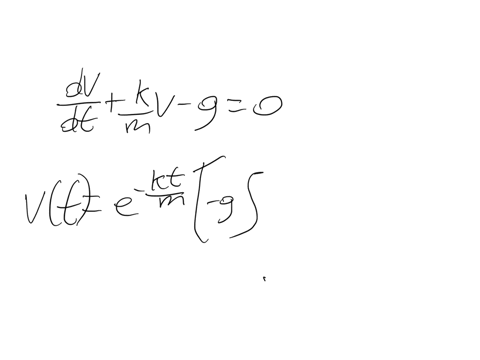 dV/dt + k/m V - g = 0
V(t) = e^{-kt/m} [-g ∫